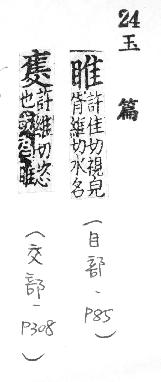 24
玉篇
睢 許住切視皃
胥維切水名
(目部、P85)
隻 許維切恣
也
睢
(交部、P308)